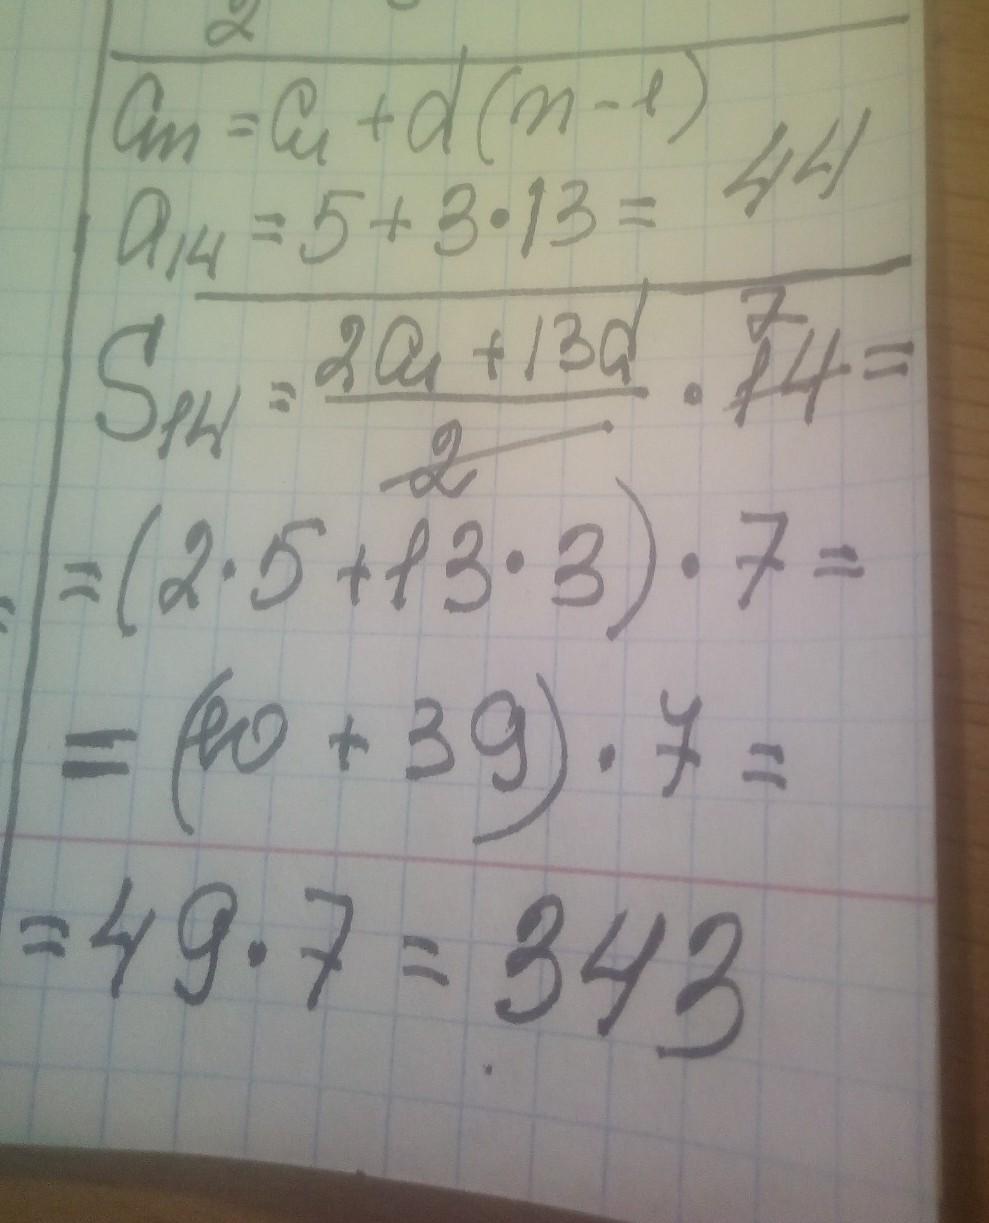 2
aₙ = a₁ + d(n - 1)
a₁₄ = 5 + 3 · 13 = 44
S₁₄ = (2a₁ + 13d)/2 · 14 = 7
= (2 · 5 + 13 · 3) · 7 =
= (10 + 39) · 7 =
= 49 · 7 = 343